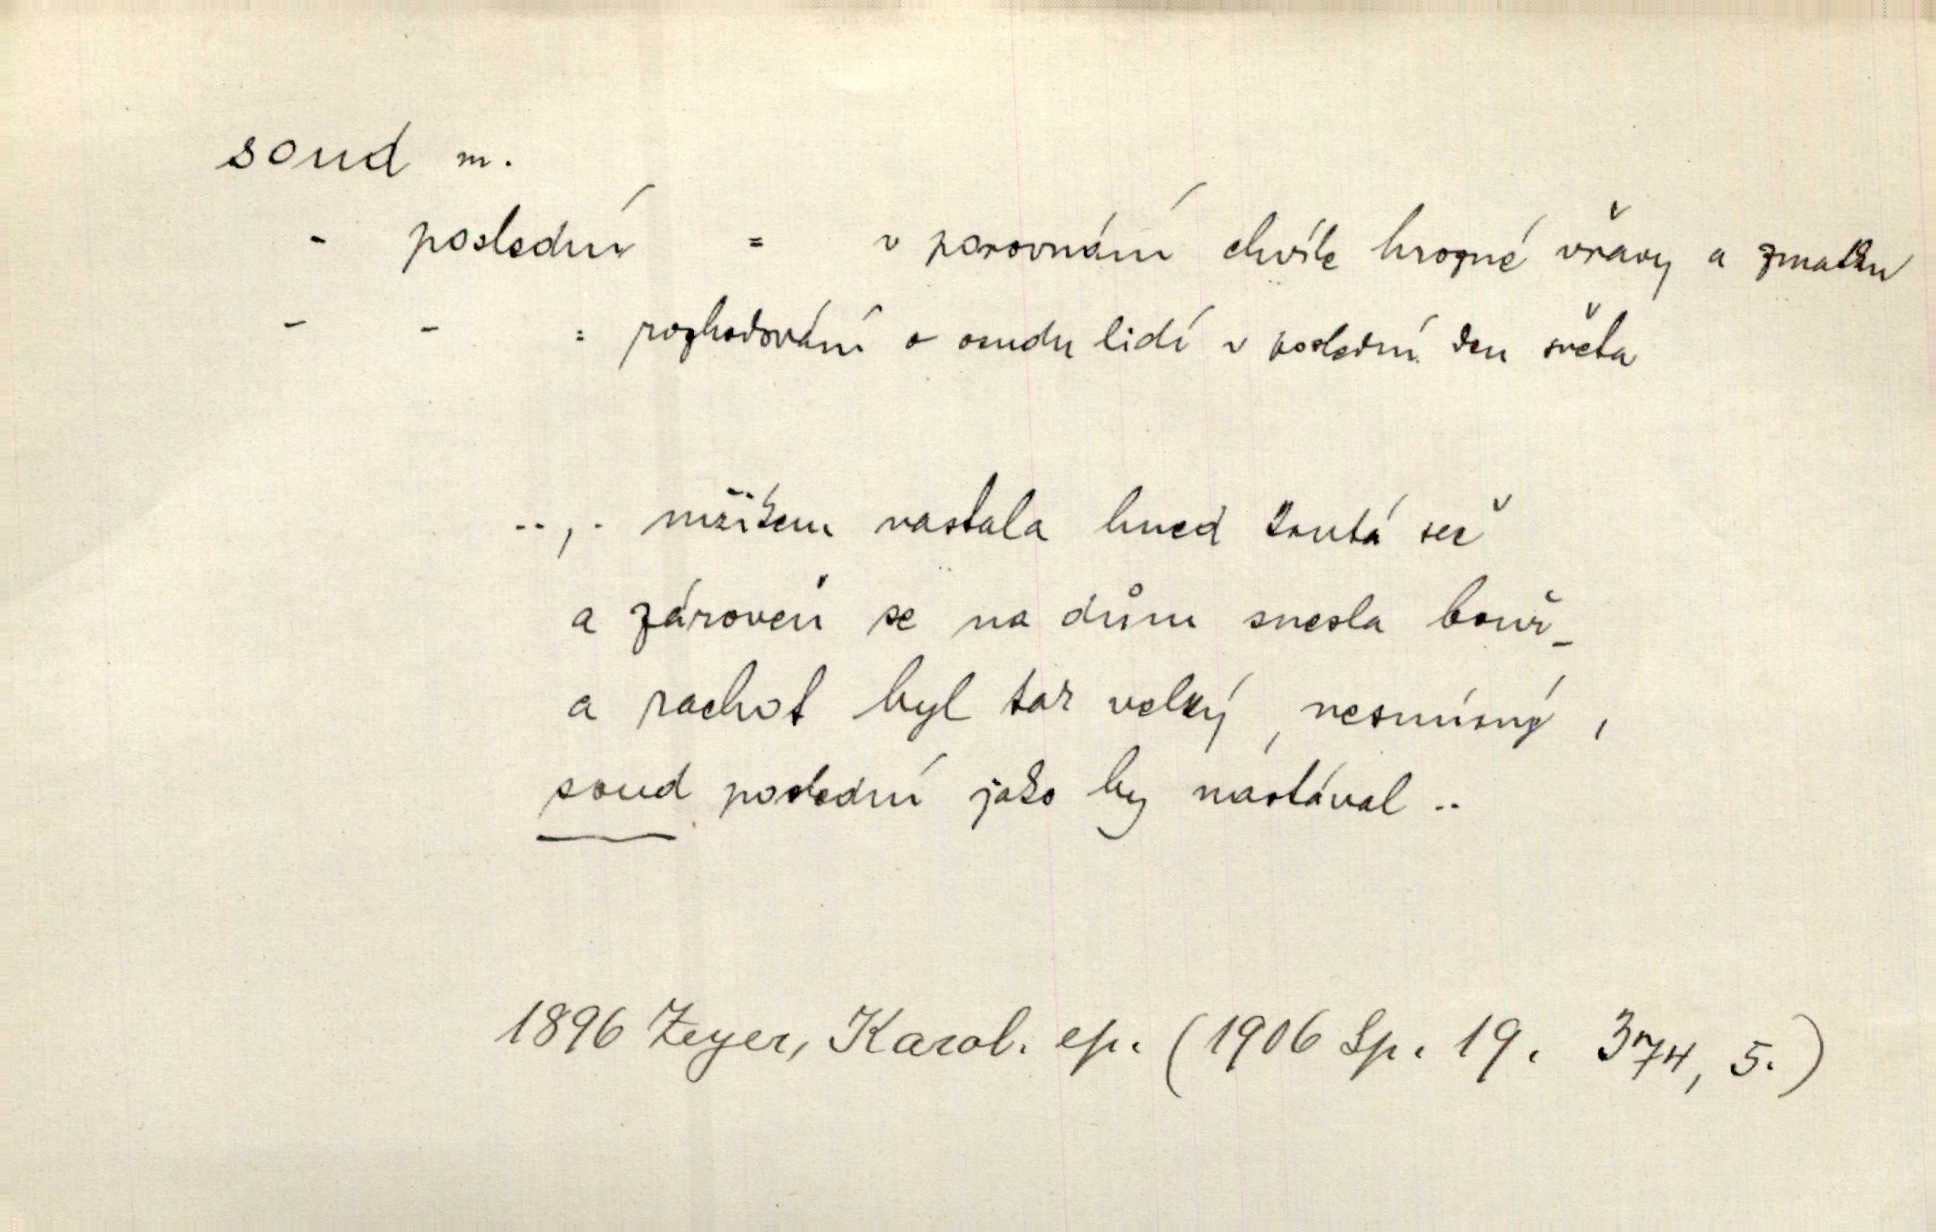 soud m.
- poslední = v porovnání chvíle hrozné vřavy a zmatku
- - = rozhodování o osudu lidí v poslední den světa
..,. mžikem nastala hned krutá seč
a zároveň se na dům snesla bouř_
a rachot byl tak velký, nesmírný,
soud poslední jako by nastával ..
1896 Zeyer, Karol. ep. (1906 Sp. 19. 374, 5.)